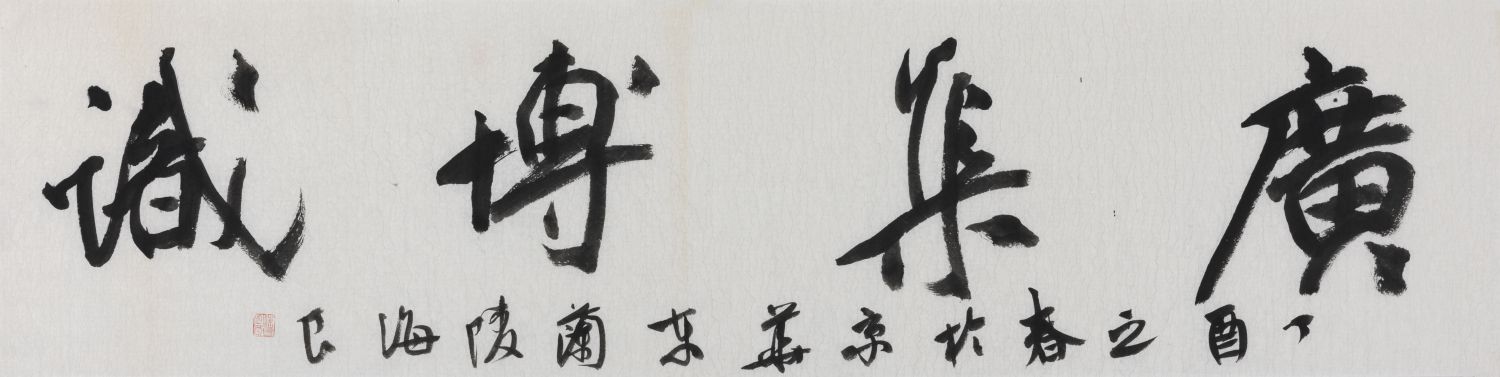 廣集博識
丁酉之春於京華東蘭陵海